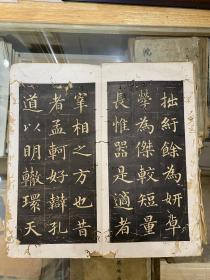 拙紆餘為妍卓
犖為傑較短量
長惟器是適者
宰相之方也昔
者孟軻好辯孔
道以明轍環天